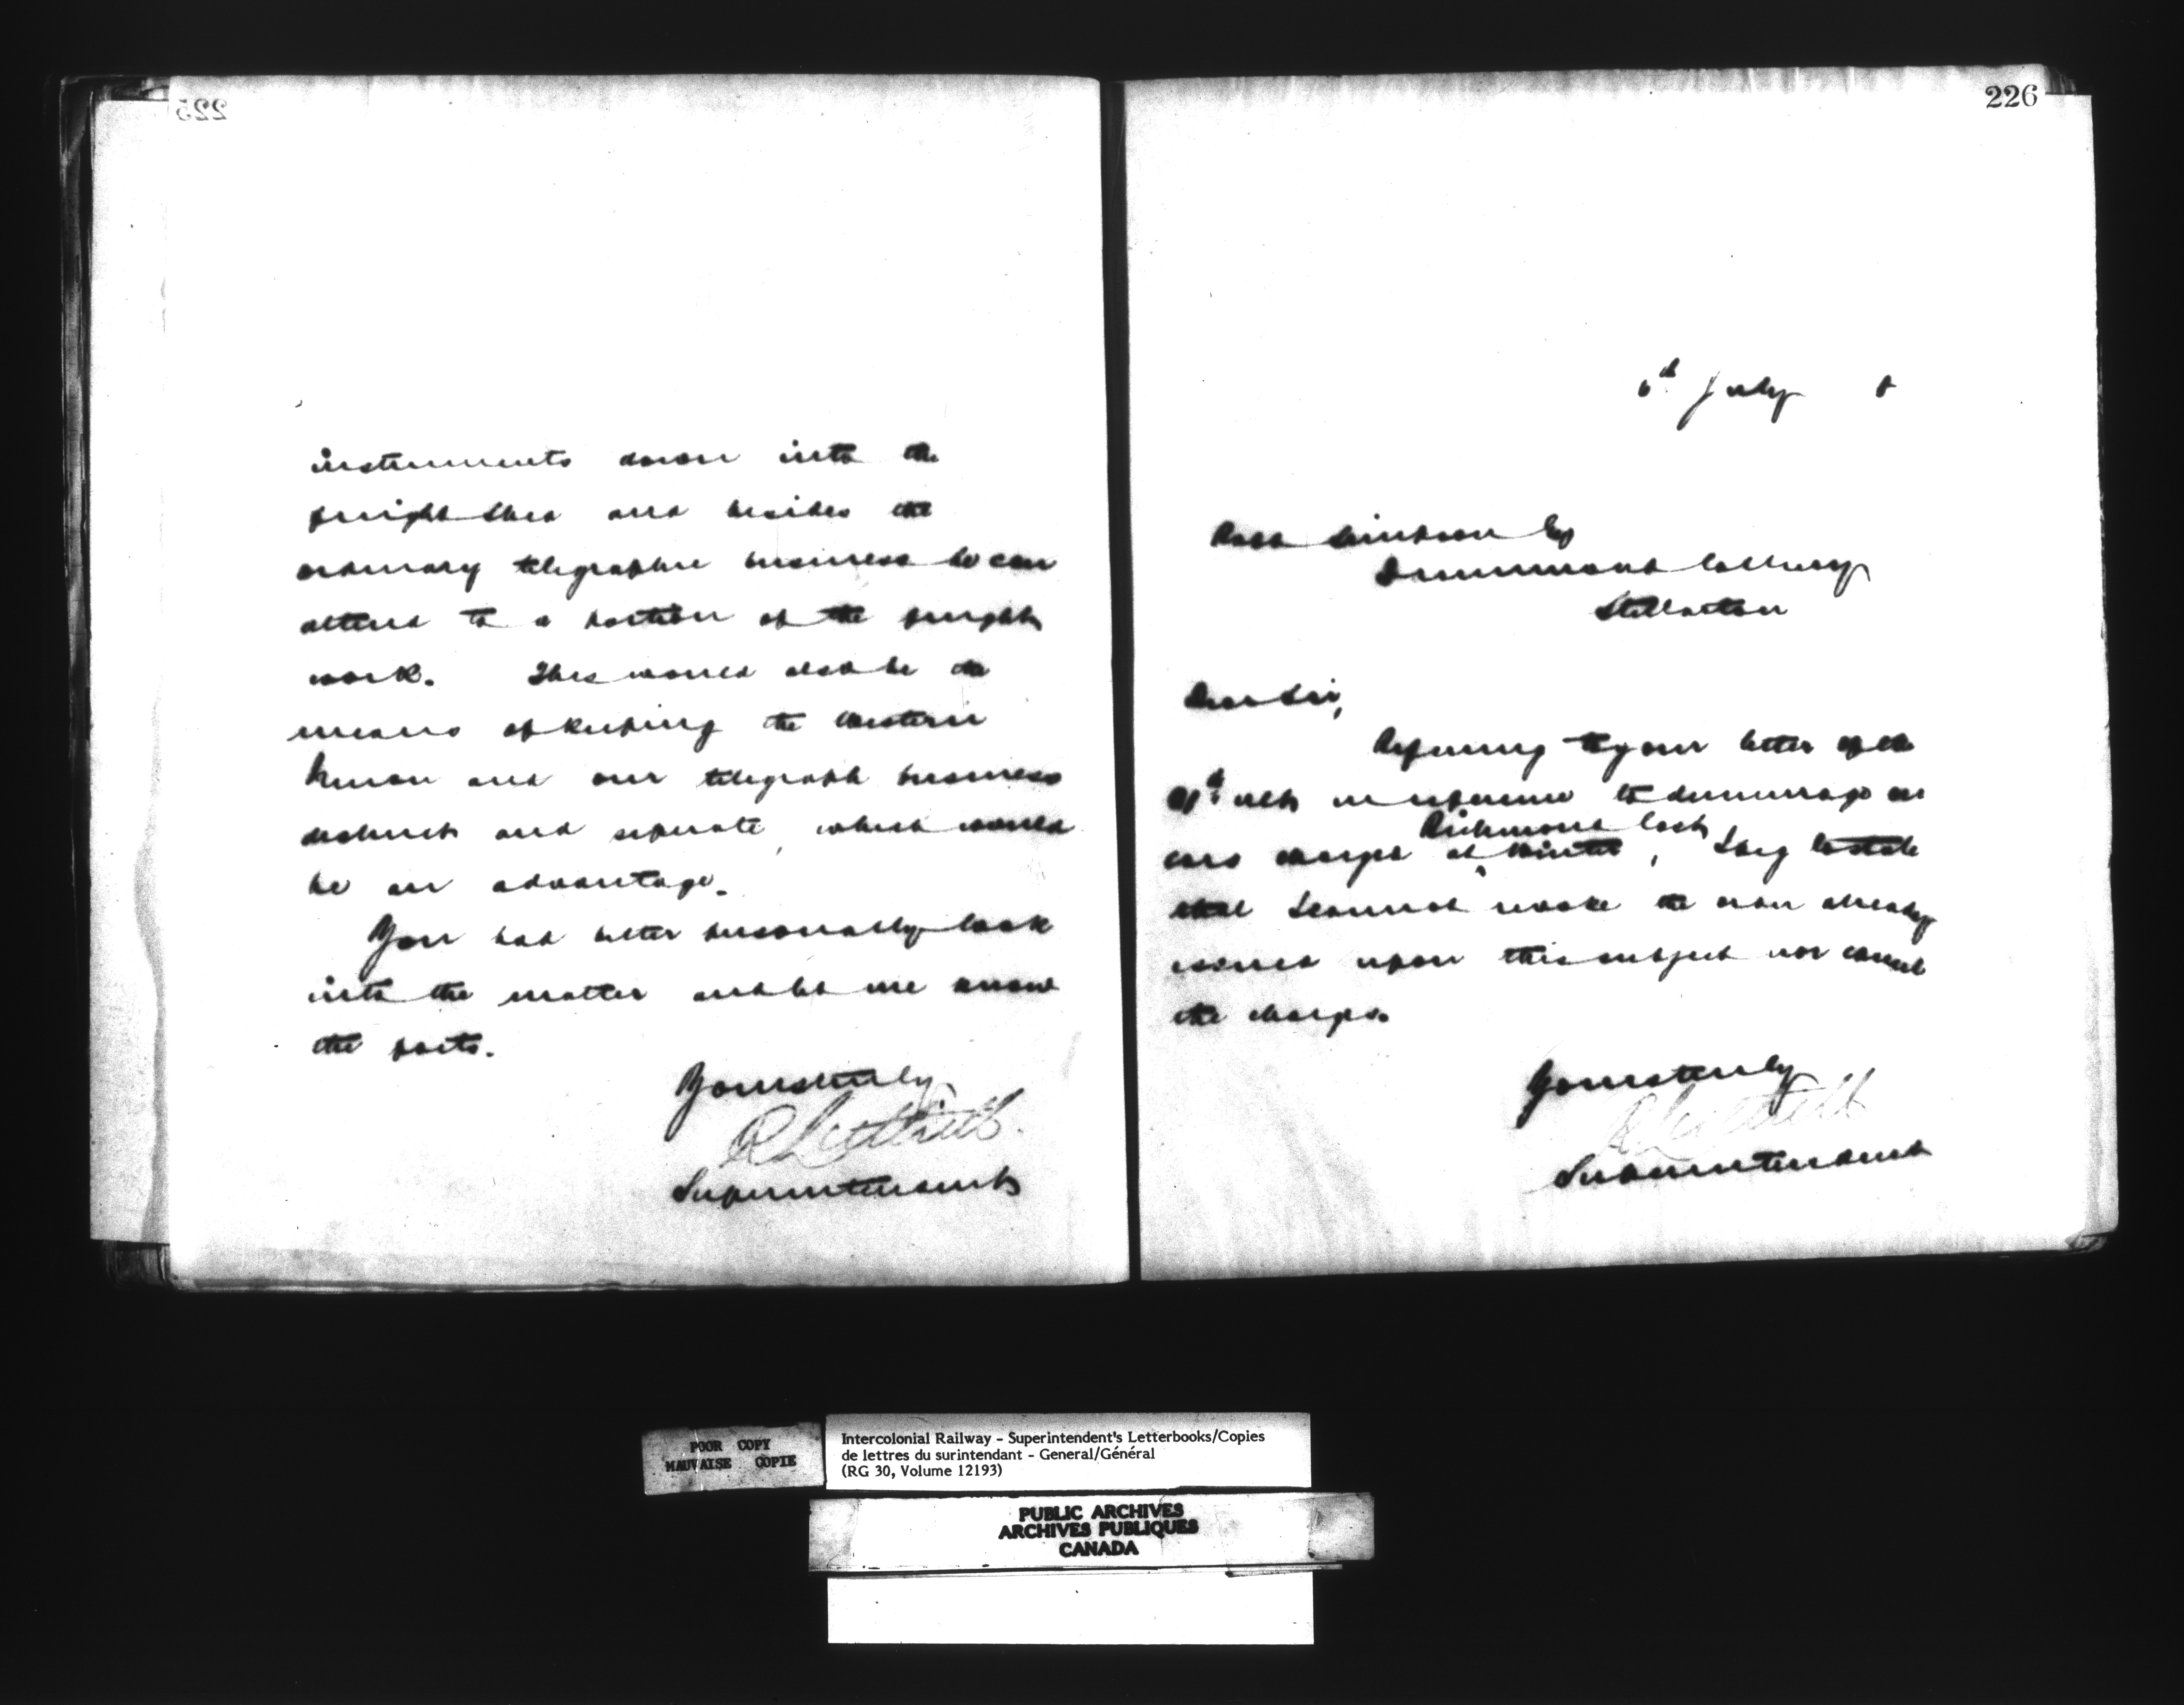 225
instruments down into the
freight shed and besides the
ordinary telegraphic business he can
attend to a portion of the freight
work. This would also be the
means of keeping the Western
Union and our telegraph business
distinct and separate, which would
be an advantage.
You had better personally look
into the matter and let me know
the facts.
Yours truly,
Superintendent
226
6th July 8
Simpson Esq
Drummond Colliery
Stellarton
Dear Sir,
Referring to your letter of the
ulto in reference to demurrage on
Richmond last
cars charged at winter, I beg to state
that I cannot revoke the order already
issued upon this subject nor cancel
the charges.
Yours truly
Superintendent
POOR COPY
MAUVAISE COPIE
Intercolonial Railway - Superintendent's Letterbooks/Copies
de lettres du surintendant - General/Général
(RG 30, Volume 12193)
PUBLIC ARCHIVES
ARCHIVES PUBLIQUES
CANADA